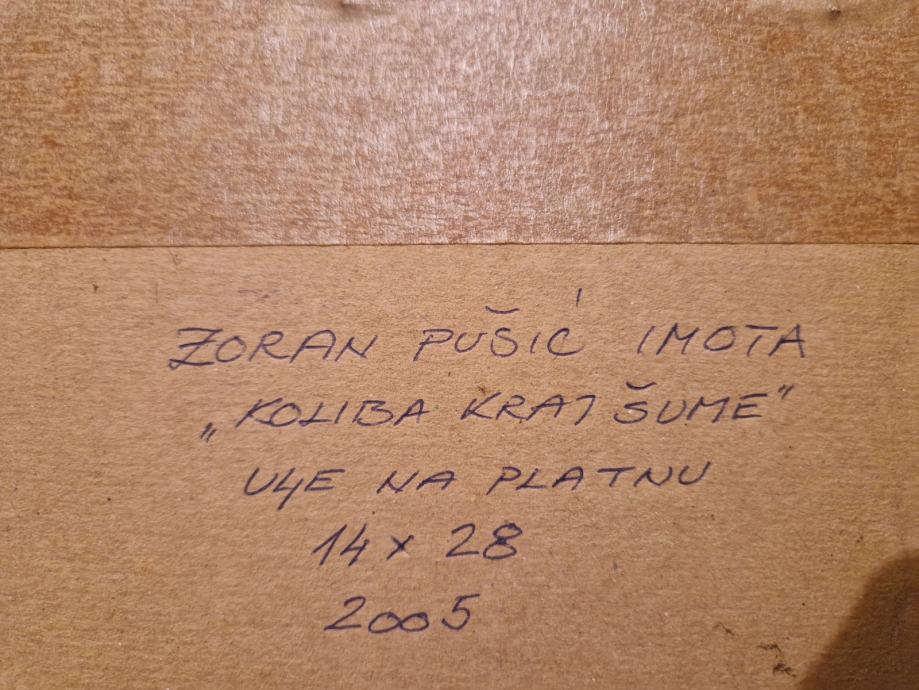 ZORAN PUŠIĆ IMOTA
„KOLIBA KRAJ ŠUME"
ULJE NA PLATNU
14 x 28
2005